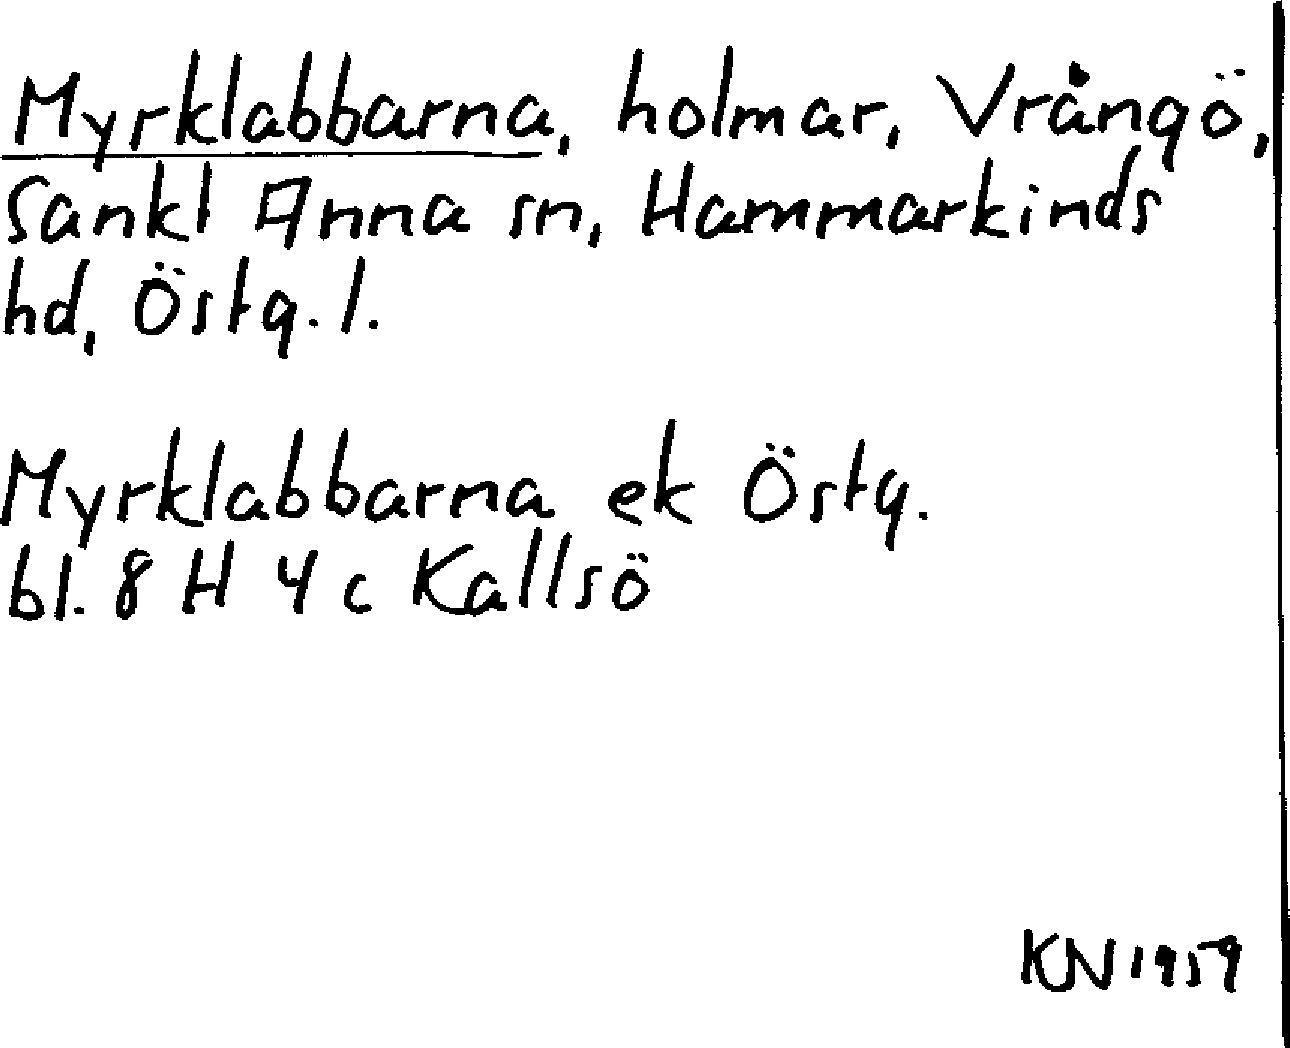 Myrklabbarna, holmar, Vrångö,
Sankt Anna sn, Hammarkinds
hd, Östg. l.
Myrklabbarna ek Östg.
bl. 8 H 4 c Kallsö
KN 1959